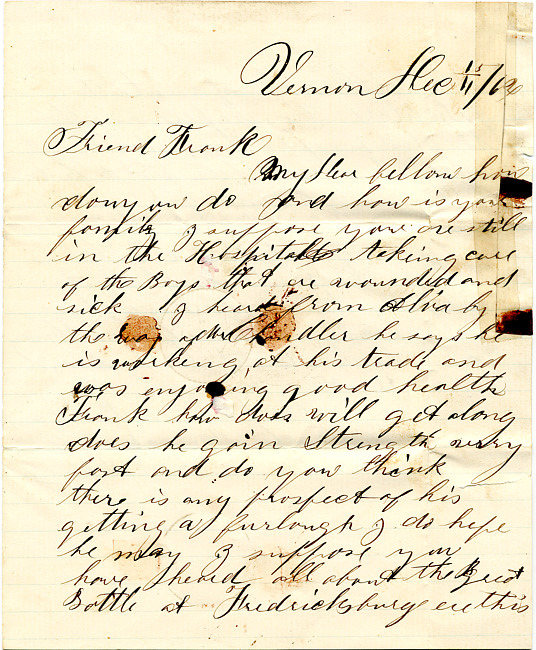 Vernon Dec 15/62
Friend Frank
My Dear fellow how
do you do and how is your
family I suppose you are still
in the Hospital taking care
of the Boys that are wounded and
sick I heard from Alva by
the way of Mr he says he
is working at his trade and
was enjoying good health
Frank how does will get along
does he gain Strength very
fast and do you think
there is any prospect of his
getting a furlough I do hope
he may I suppose you
have heard all about the Great
Battle at Fredricksburg ere this